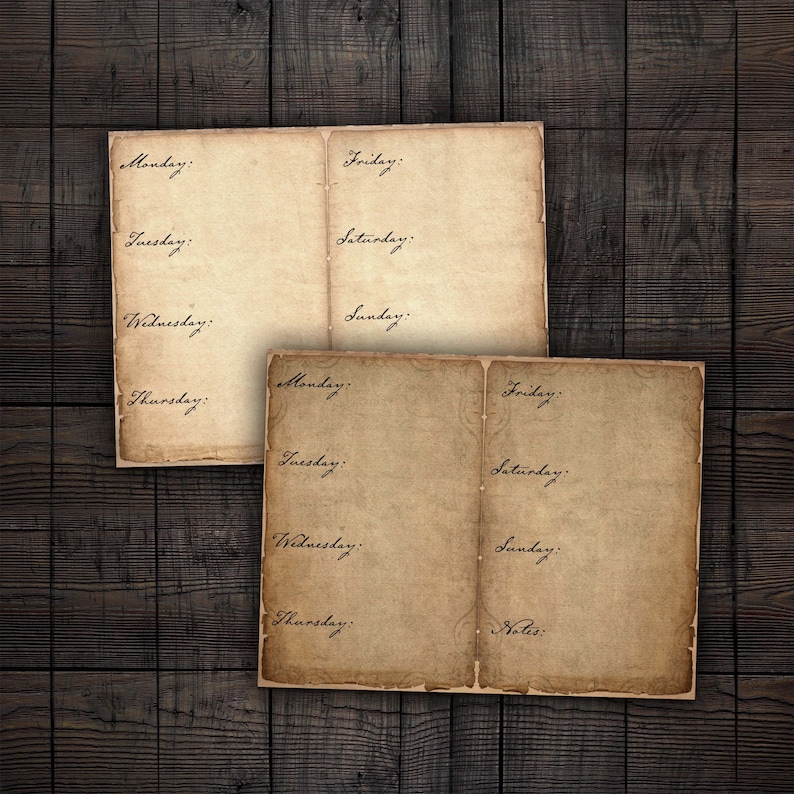 Monday:
Tuesday:
Wednesday:
Thursday:
Friday:
Saturday:
Sunday:
Monday:
Tuesday:
Wednesday:
Thursday:
Friday:
Saturday:
Sunday:
Notes: